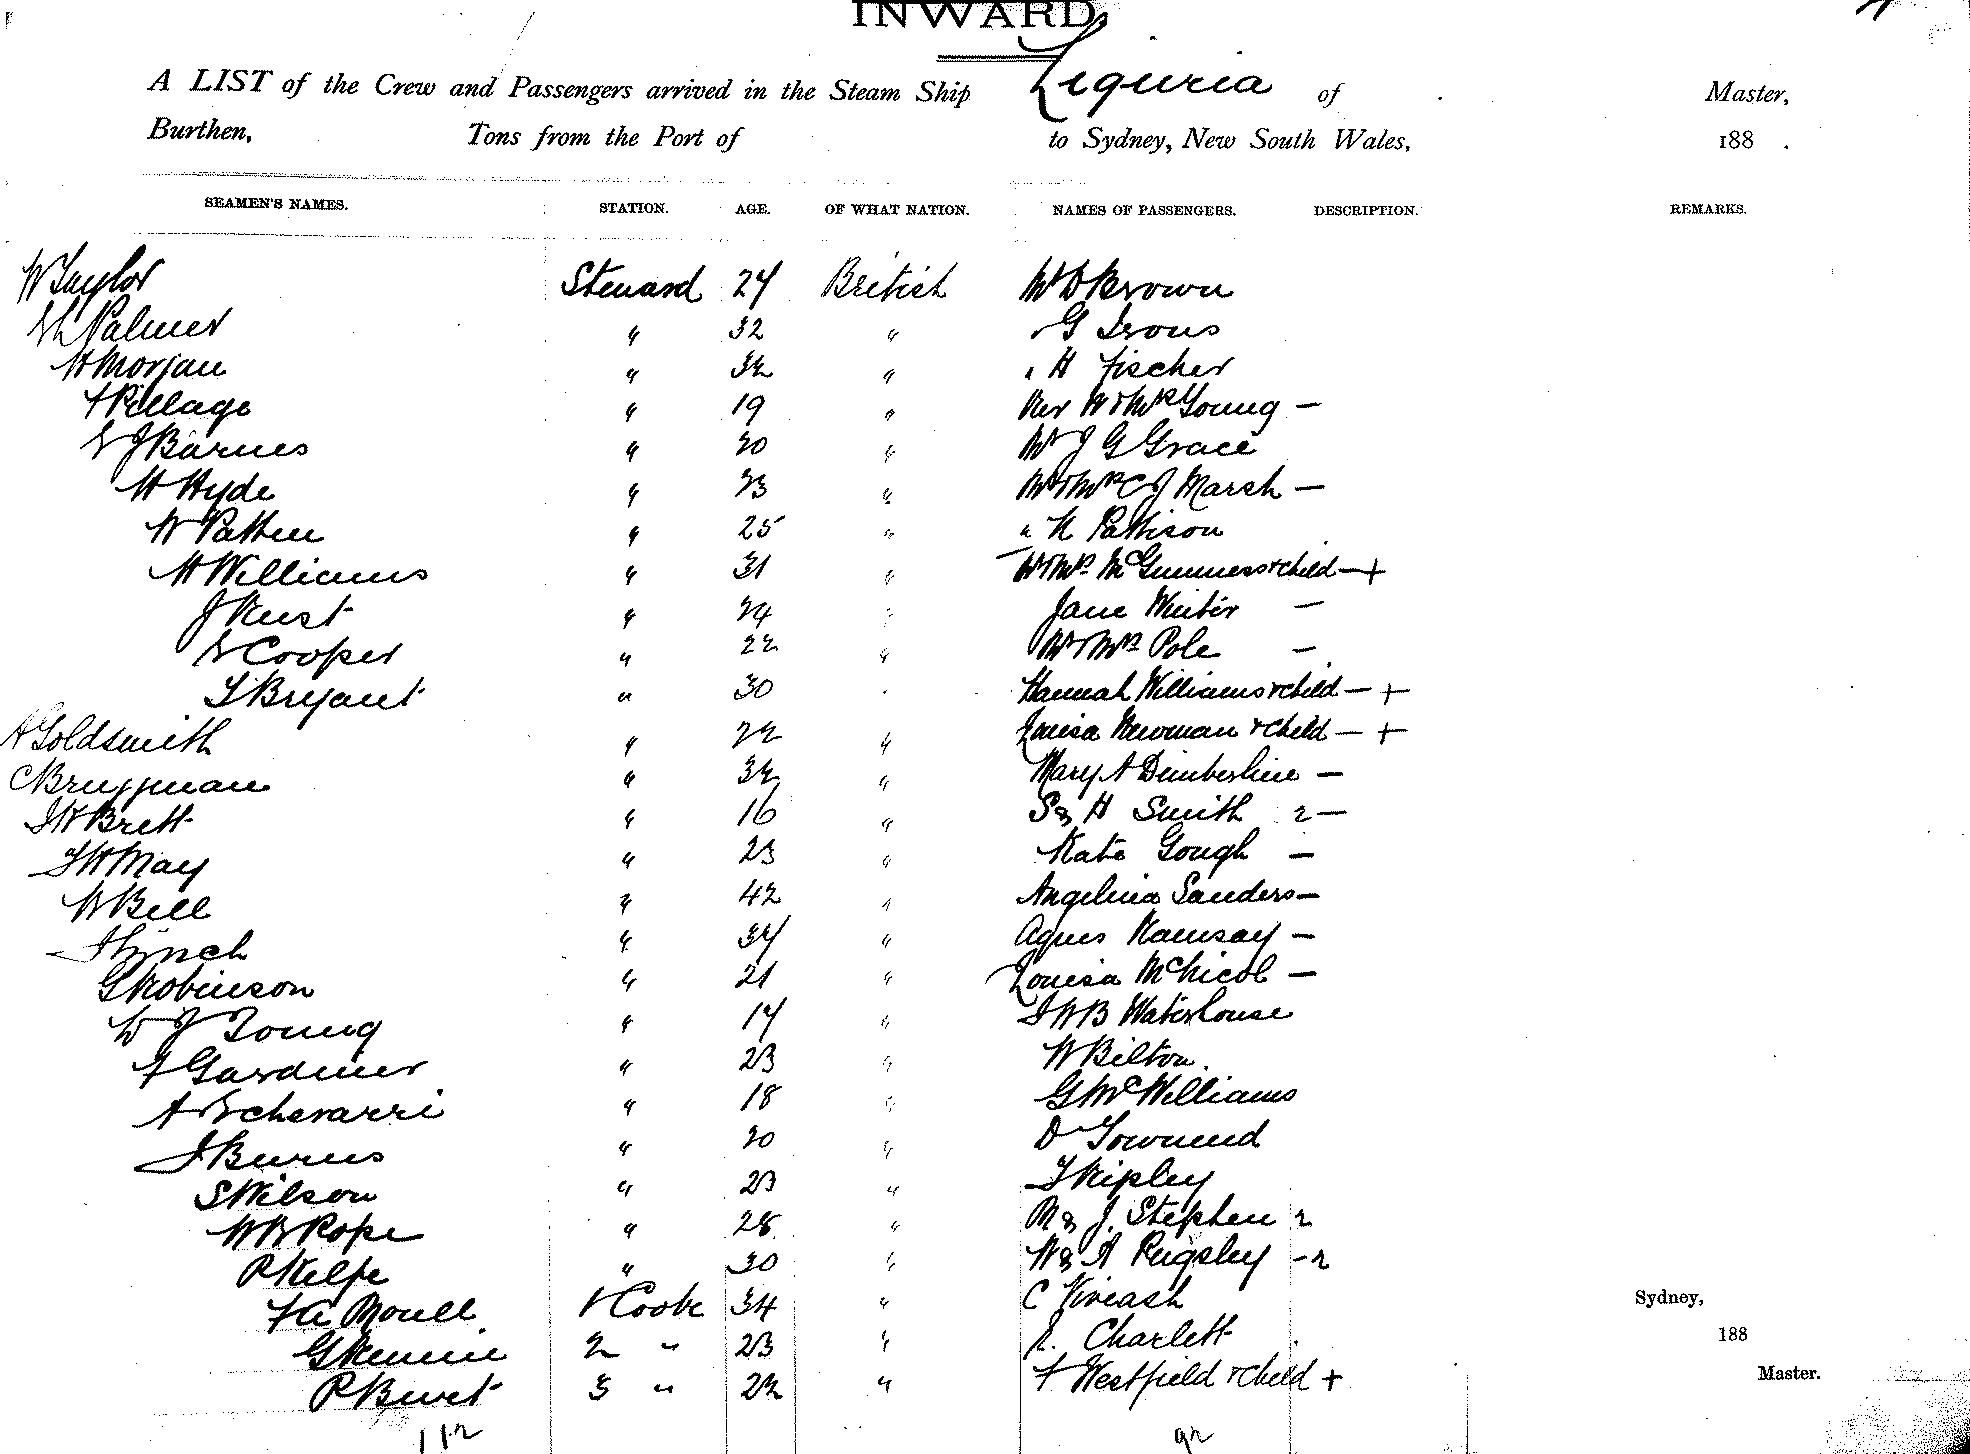 INWARD
A LIST of the Crew and Passengers arrived in the Steam Ship Liguria of Master,
Burthen, Tons from the Port of to Sydney, New South Wales, 188 .
SEAMEN'S NAMES. STATION. AGE. OF WHAT NATION. NAMES OF PASSENGERS. DESCRIPTION. REMARKS.
W Taylor Steward 24 British Mr D Brown
Palmer " 32 " " G Irons
H Morgan " 32 " " H Fischer
F Pillage " 19 " Rev W & Mrs Young —
E J Barnes " 30 " Mr J G Grace
H Hyde " 23 " Mr & Mrs C J Marsh —
W Patten " 25 " " Pattison
H Williams " 31 " Mr & Mrs McGunness & child — +
J Rust " 24 " Jane Winter —
E Cooper " 22 " Mr & Mrs Pole —
T Bryant " 30 " Hannah Williams & child — +
A Goldsmith " 22 " Louisa Newman & child — +
C Bruggman " 32 " Mary A Dimberline —
J H Brett " 16 " S & H Smith 2 —
T H May " 23 " Kate Gough —
W Bell " 42 " Angelina Sanders —
J Lynch " 34 " Agnes Ramsay —
G Robinson " 21 " Louisa McNicol —
W J Young " 17 " J W B Waterhouse
F Gardiner " 23 " W Bilton
A Echevarri " 18 " G McWilliams
J Burns " 20 " D Townend
S Wilson " 23 " T Ripley
W B Pope " 28 " M & J. Stephen 2
P Kelfe " 30 " W & A Pugsley — 2
F A Morell Cook 34 " C Viveash
G Rennie 2 " 23 " Charlett
P Buret 3 " 22 " F Westfield & Child +
112 92
Sydney,
188
Master.